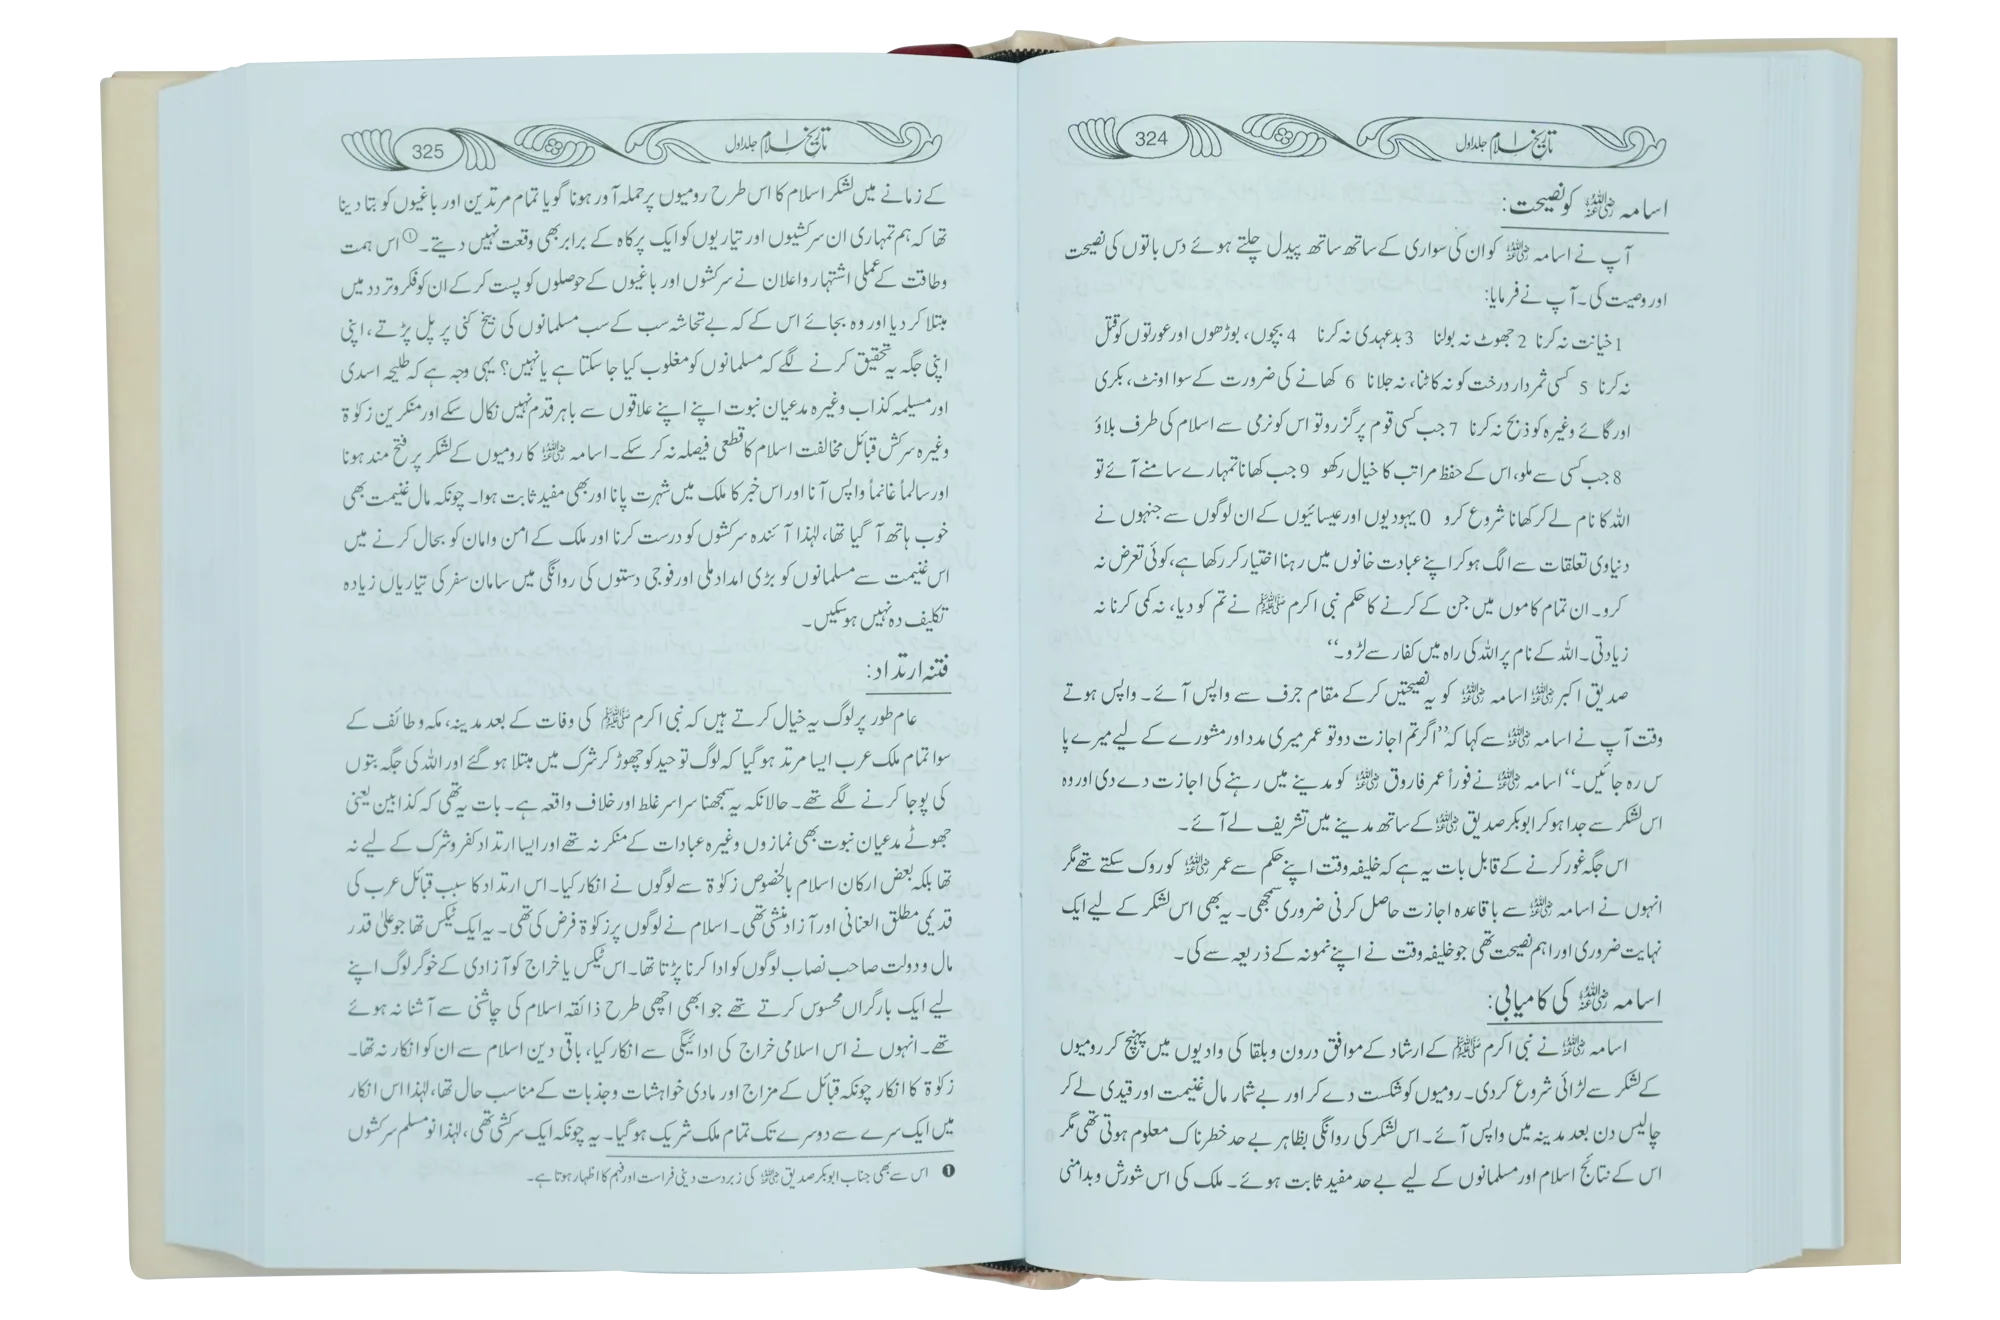 324
تاریخ اسلام جلد اول
اسامہ رضی اللہ عنہ کو نصیحت:
آپ نے اسامہ رضی اللہ عنہ کو ان کی سواری کے ساتھ ساتھ پیدل چلتے ہوئے دس باتوں کی نصیحت
اور وصیت کی۔ آپ نے فرمایا:
1 خیانت نہ کرنا 2 جھوٹ نہ بولنا 3 بدعہدی نہ کرنا 4 بچوں، بوڑھوں اور عورتوں کو قتل
نہ کرنا 5 کسی ثمردار درخت کو نہ کاٹنا، نہ جلانا 6 کھانے کی ضرورت کے سوا اونٹ، بکری
اور گائے وغیرہ کو ذبح نہ کرنا 7 جب کسی قوم پر گزرو تو اس کو نرمی سے اسلام کی طرف بلاؤ
8 جب کسی سے ملو، اس کے حفظ مراتب کا خیال رکھو 9 جب کھانا تمہارے سامنے آئے تو
اللہ کا نام لے کر کھانا شروع کرو 0 یہودیوں اور عیسائیوں کے ان لوگوں سے جنہوں نے
دنیاوی تعلقات سے الگ ہو کر اپنے عبادت خانوں میں رہنا اختیار کر رکھا ہے، کوئی تعرض نہ
کرو۔ ان تمام کاموں میں جن کے کرنے کا حکم نبی اکرم ﷺ نے تم کو دیا، نہ کمی کرنا نہ
زیادتی۔ اللہ کے نام پر اللہ کی راہ میں کفار سے لڑو۔‘‘
صدیق اکبر رضی اللہ عنہ اسامہ رضی اللہ عنہ کو یہ نصیحتیں کر کے مقام جرف سے واپس آئے۔ واپس ہوتے
وقت آپ نے اسامہ رضی اللہ عنہ سے کہا کہ ’’اگر تم اجازت دو تو عمر میری مدد اور مشورے کے لیے میرے پا
س رہ جائیں۔‘‘ اسامہ رضی اللہ عنہ نے فوراً عمر فاروق رضی اللہ عنہ کو مدینے میں رہنے کی اجازت دے دی اور وہ
اس لشکر سے جدا ہو کر ابوبکر صدیق رضی اللہ عنہ کے ساتھ مدینے میں تشریف لے آئے۔
اس جگہ غور کرنے کے قابل بات یہ ہے کہ خلیفہ وقت اپنے حکم سے عمر رضی اللہ عنہ کو روک سکتے تھے مگر
انہوں نے اسامہ رضی اللہ عنہ سے با قاعدہ اجازت حاصل کرنی ضروری سمجھی۔ یہ بھی اس لشکر کے لیے ایک
نہایت ضروری اور اہم نصیحت تھی جو خلیفہ وقت نے اپنے نمونہ کے ذریعہ سے کی۔
اسامہ رضی اللہ عنہ کی کامیابی:
اسامہ رضی اللہ عنہ نے نبی اکرم ﷺ کے ارشاد کے موافق درون و بلقا کی وادیوں میں پہنچ کر رومیوں
کے لشکر سے لڑائی شروع کر دی۔ رومیوں کو شکست دے کر اور بے شمار مال غنیمت اور قیدی لے کر
چالیس دن بعد مدینہ میں واپس آئے۔ اس لشکر کی روانگی بظاہر بے حد خطرناک معلوم ہوتی تھی مگر
اس کے نتائج اسلام اور مسلمانوں کے لیے بے حد مفید ثابت ہوئے۔ ملک کی اس شورش و بدامنی
325
تاریخ اسلام جلد اول
کے زمانے میں لشکر اسلام کا اس طرح رومیوں پر حملہ آور ہونا گویا تمام مرتدین اور باغیوں کو بتا دینا
تھا کہ ہم تمہاری ان سرکشیوں اور تیاریوں کو ایک پرکاہ کے برابر بھی وقعت نہیں دیتے۔ ① اس ہمت
و طاقت کے عملی اشتہار و اعلان نے سرکشوں اور باغیوں کے حوصلوں کو پست کر کے ان کو فکر و تردد میں
مبتلا کر دیا اور وہ بجائے اس کے کہ بے تحاشہ سب کے سب مسلمانوں کی بیخ کنی پر پل پڑتے، اپنی
اپنی جگہ یہ تحقیق کرنے لگے کہ مسلمانوں کو مغلوب کیا جا سکتا ہے یا نہیں؟ یہی وجہ ہے کہ طلیحہ اسدی
اور مسیلمہ کذاب وغیرہ مدعیان نبوت اپنے اپنے علاقوں سے باہر قدم نہیں نکال سکے اور منکرین زکوٰۃ
وغیرہ سرکش قبائل مخالفت اسلام کا قطعی فیصلہ نہ کر سکے۔ اسامہ رضی اللہ عنہ کا رومیوں کے لشکر پر فتح مند ہونا
اور سالماً غانماً واپس آنا اور اس خبر کا ملک میں شہرت پانا اور بھی مفید ثابت ہوا۔ چونکہ مال غنیمت بھی
خوب ہاتھ آ گیا تھا، لہٰذا آئندہ سرکشوں کو درست کرنا اور ملک کے امن و امان کو بحال کرنے میں
اس غنیمت سے مسلمانوں کو بڑی امداد ملی اور فوجی دستوں کی روانگی میں سامان سفر کی تیاریاں زیادہ
تکلیف دہ نہیں ہو سکیں۔
فتنہ ارتداد:
عام طور پر لوگ یہ خیال کرتے ہیں کہ نبی اکرم ﷺ کی وفات کے بعد مدینہ، مکہ و طائف کے
سوا تمام ملک عرب ایسا مرتد ہو گیا کہ لوگ توحید کو چھوڑ کر شرک میں مبتلا ہو گئے اور اللہ کی جگہ بتوں
کی پوجا کرنے لگے تھے۔ حالانکہ یہ سمجھنا سراسر غلط اور خلاف واقعہ ہے۔ بات یہ تھی کہ کذابین یعنی
جھوٹے مدعیان نبوت بھی نمازوں وغیرہ عبادات کے منکر نہ تھے اور ایسا ارتداد کفر و شرک کے لیے نہ
تھا بلکہ بعض ارکان اسلام بالخصوص زکوٰۃ سے لوگوں نے انکار کیا۔ اس ارتداد کا سبب قبائل عرب کی
قدیمی مطلق العنانی اور آزاد منشی تھی۔ اسلام نے لوگوں پر زکوٰۃ فرض کی تھی۔ یہ ایک ٹیکس تھا جو علیٰ قدر
مال و دولت صاحب نصاب لوگوں کو ادا کرنا پڑتا تھا۔ اس ٹیکس یا خراج کو آزادی کے خوگر لوگ اپنے
لیے ایک بار گراں محسوس کرتے تھے جو ابھی اچھی طرح ذائقہ اسلام کی چاشنی سے آشنا نہ ہوئے
تھے۔ انہوں نے اس اسلامی خراج کی ادائیگی سے انکار کیا، باقی دین اسلام سے ان کو انکار نہ تھا۔
زکوٰۃ کا انکار چونکہ قبائل کے مزاج اور مادی خواہشات و جذبات کے مناسب حال تھا، لہٰذا اس انکار
میں ایک سرے سے دوسرے تک تمام ملک شریک ہو گیا۔ یہ چونکہ ایک سرکشی تھی، لہٰذا نومسلم سرکشوں
❶ اس سے بھی جناب ابوبکر صدیق رضی اللہ عنہ کی زبردست دینی فراست اور فہم کا اظہار ہوتا ہے۔